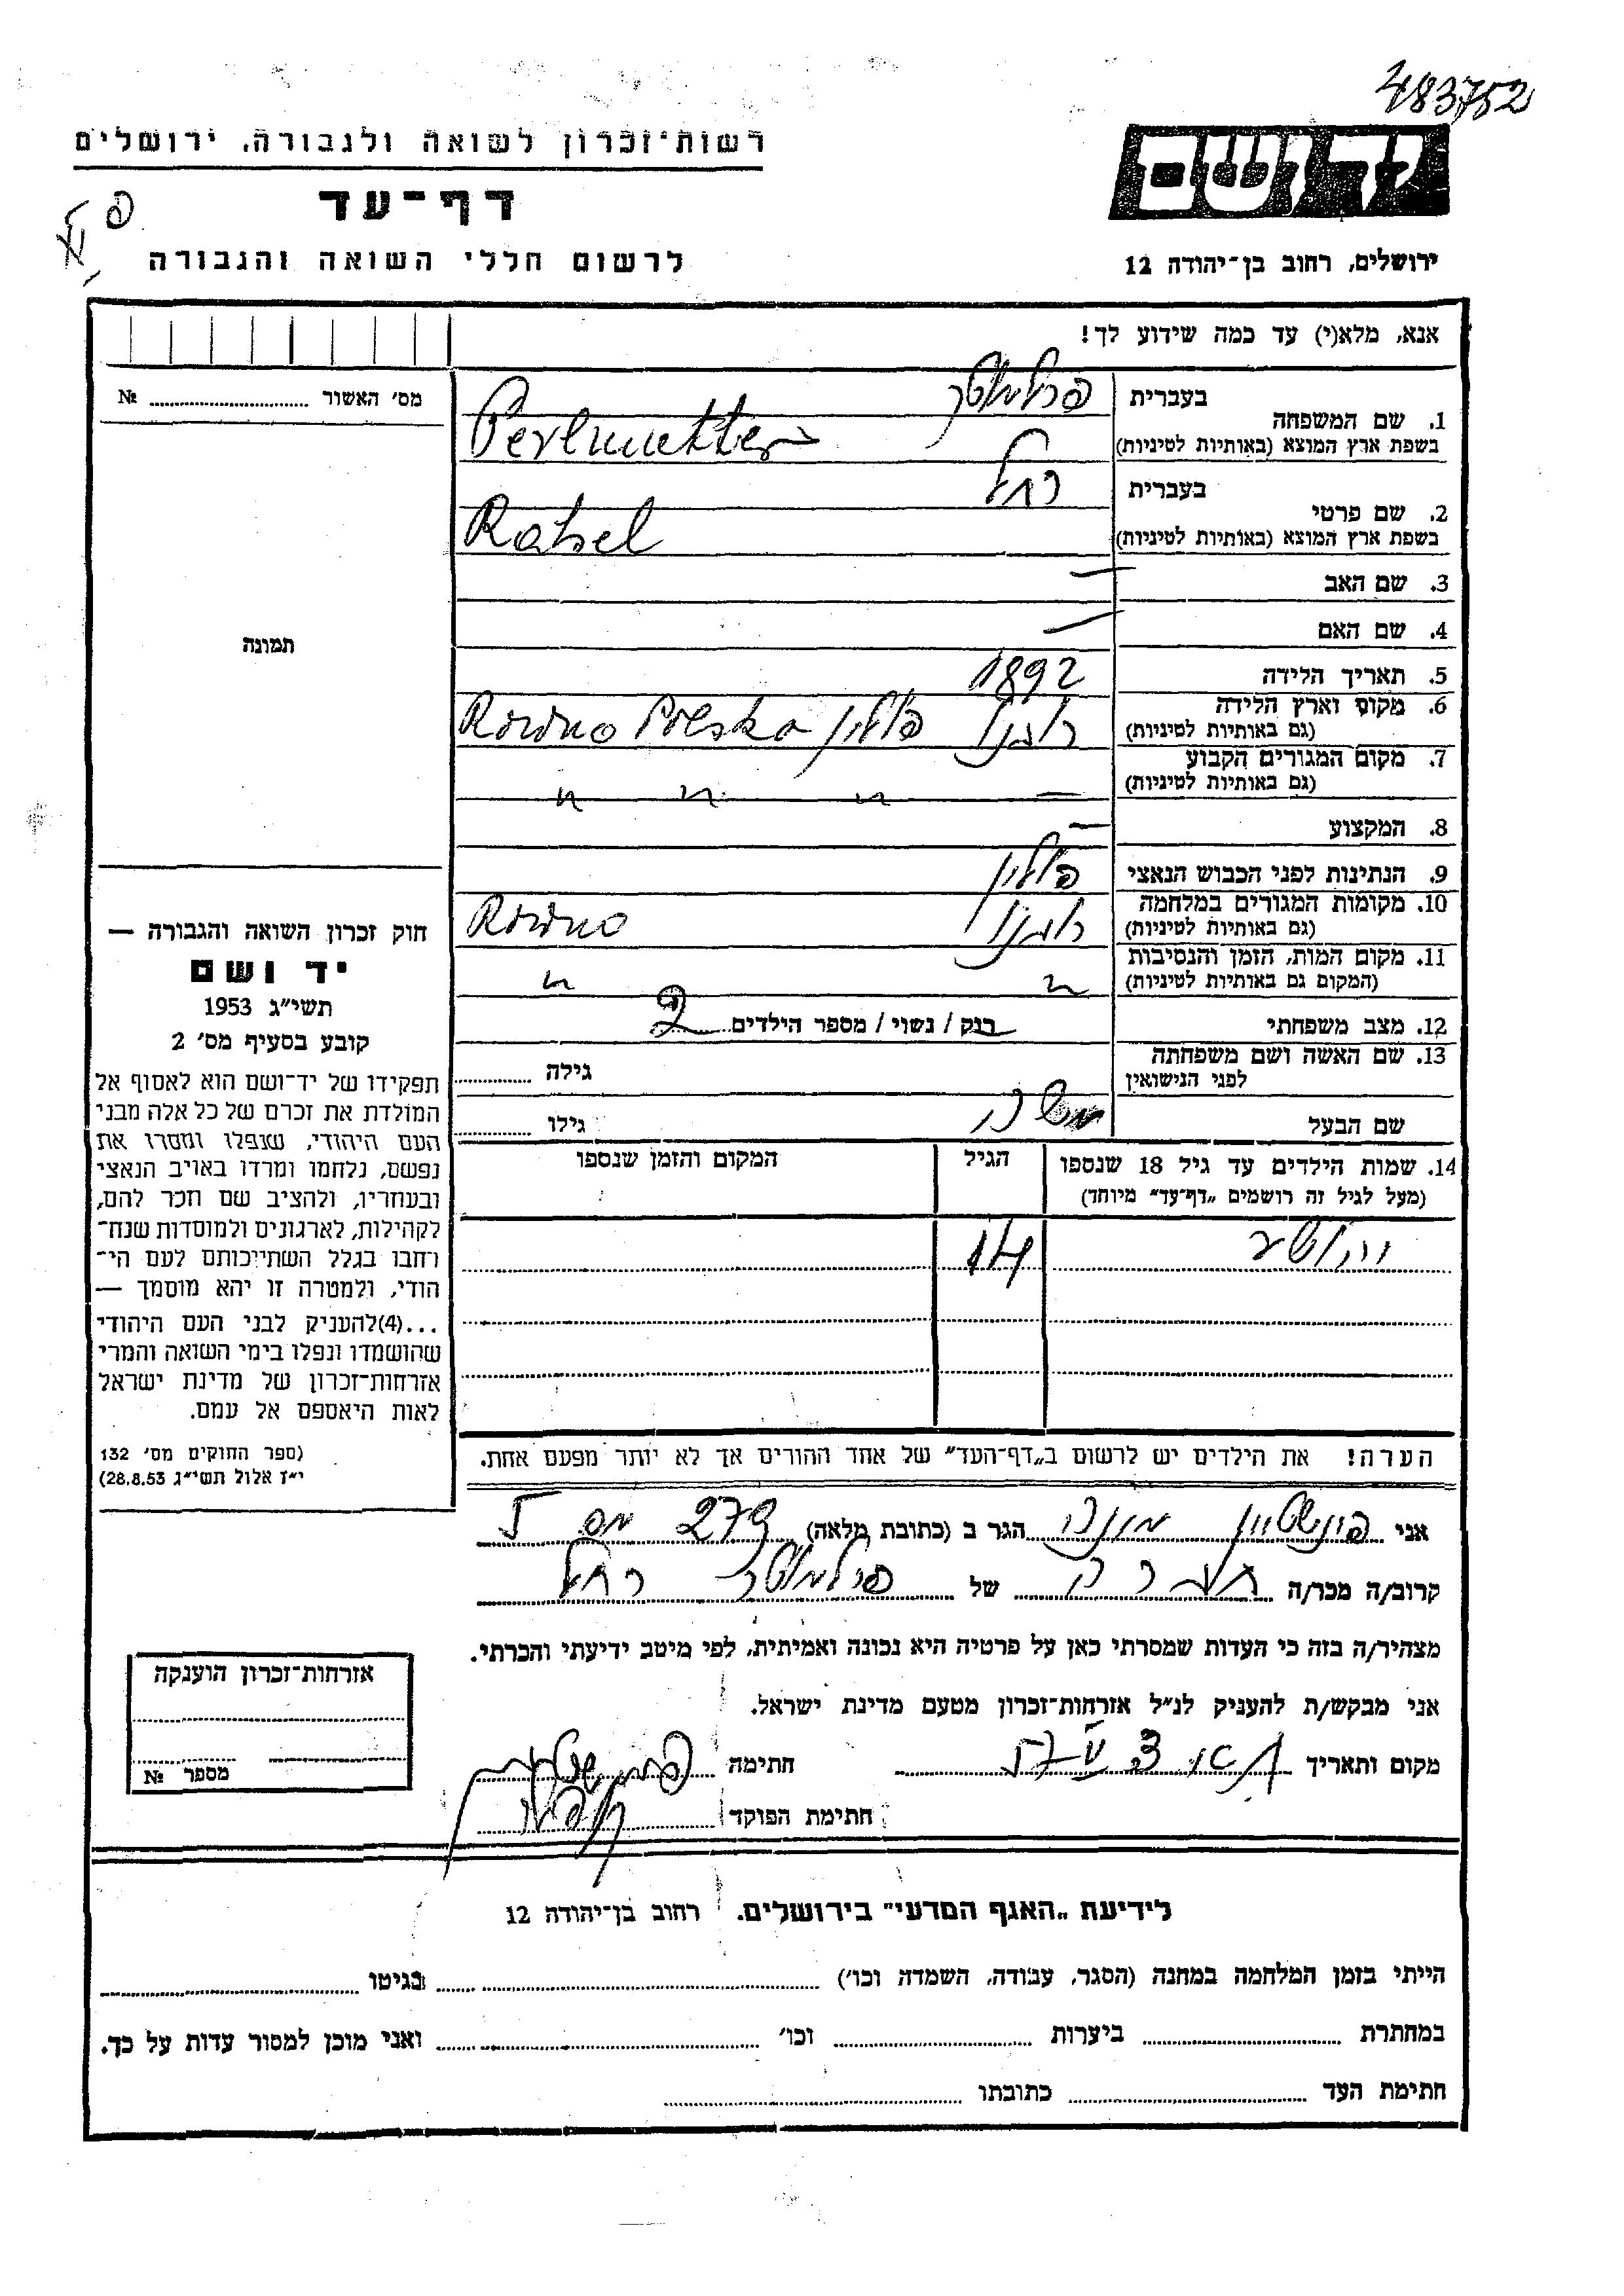 483752
רשות־זכרון לשואה ולגבורה, ירושלים
יד ושם
דף־עד
לרשום חללי השואה והגבורה
ירושלים, רחוב בן־יהודה 12
אנא, מלא(י) עד כמה שידוע לך!
מס׳ האשור № 
תמונה
חוק זכרון השואה והגבורה —
יד ושם
תשי״ג 1953
קובע בסעיף מס׳ 2
תפקידו של יד־ושם הוא לאסוף אל
המולדת את זכרם של כל אלה מבני
העם היהודי, שנפלו ומסרו את
נפשם, נלחמו ומרדו באויב הנאצי
ובעוזריו, ולהציב שם וזכר להם,
לקהילות, לארגונים ולמוסדות שנח־
רחבו בגלל השתייכותם לעם הי־
הודי, ולמטרה זו יהא מוסמך —
...(4)להעניק לבני העם היהודי
שהושמדו ונפלו בימי השואה והמרי
אזרחות־זכרון של מדינת ישראל
לאות היאספם אל עמם.
(ספר החוקים מס׳ 132
י״ז אלול תשי״ג 28.8.53)
1. שם המשפחה בעברית פרלמוטר
בשפת ארץ המוצא (באותיות לטיניות) Perlmutter
2. שם פרטי בעברית רחל
בשפת ארץ המוצא (באותיות לטיניות) Rahel
3. שם האב —
4. שם האם —
5. תאריך הלידה 1892
6. מקום וארץ הלידה (גם באותיות לטיניות) רובנו פולין Rowno Polska
7. מקום המגורים הקבוע (גם באותיות לטיניות) — " " "
8. המקצוע —
9. הנתינות לפני הכבוש הנאצי פולין
10. מקומות המגורים במלחמה (גם באותיות לטיניות) רובנו Rowno
11. מקום המות, הזמן והנסיבות (המקום גם באותיות לטיניות) " "
12. מצב משפחתי רוק / נשוי / מספר הילדים 2
13. שם האשה ושם משפחתה לפני הנישואין גילה
שם הבעל משה גילו
14. שמות הילדים עד גיל 18 שנספו (מעל לגיל זה רושמים „דף־עד״ מיוחד) הגיל המקום והזמן שנספו
14
הערה! את הילדים יש לרשום ב„דף־העד״ של אחד ההורים אך לא יותר מפעם אחת.
אני פינשטיין מונה הגר ב (כתובת מלאה) 279
קרוב/ה מכר/ה חברה של פרלמוטר רחל
מצהיר/ה בזה כי העדות שמסרתי כאן על פרטיה היא נכונה ואמיתית, לפי מיטב ידיעתי והכרתי.
אני מבקש/ת להעניק לנ״ל אזרחות־זכרון מטעם מדינת ישראל.
מקום ותאריך חתימה
חתימת הפוקד
אזרחות־זכרון הוענקה
מספר №
לידיעת „האגף המדעי״ בירושלים. רחוב בן־יהודה 12
הייתי בזמן המלחמה במחנה (הסגר, עבודה, השמדה וכו׳) בגיטו
במחתרת ביערות וכו׳ ואני מוכן למסור עדות על כך.
חתימת העד כתובתו